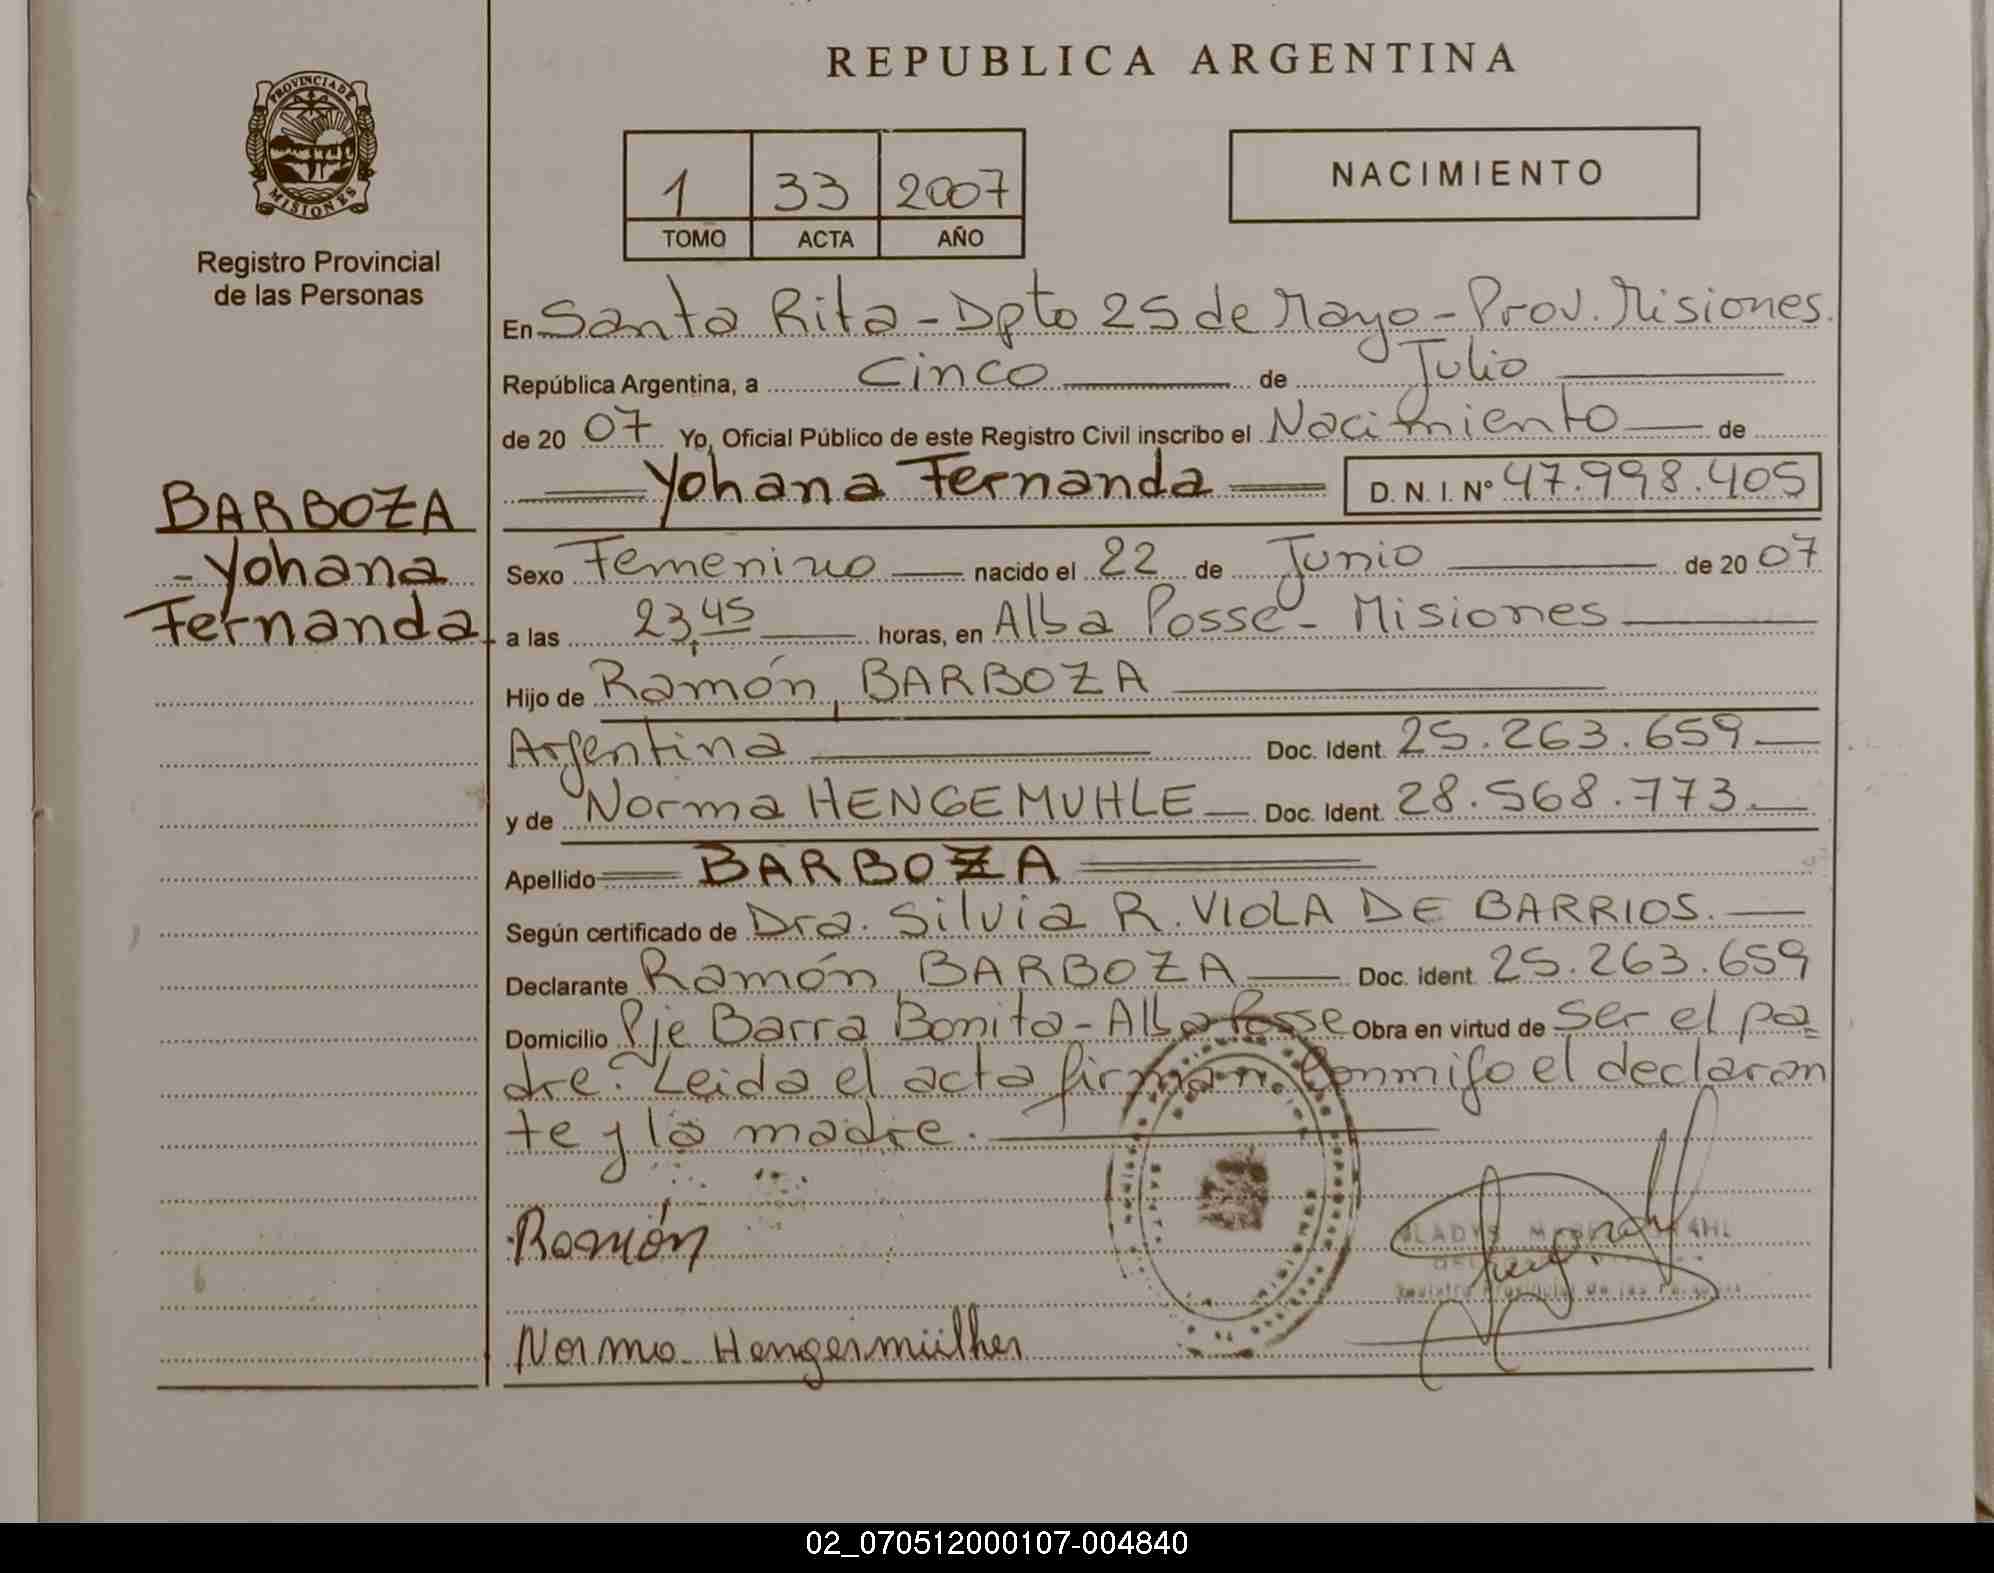 REPUBLICA ARGENTINA
PROVINCIA DE
MISIONES
Registro Provincial
de las Personas
1 33 2007
TOMO ACTA AÑO
NACIMIENTO
En Santa Rita - Dpto 25 de Mayo - Prov. Misiones.
República Argentina, a Cinco de Julio
de 20 07 Yo, Oficial Público de este Registro Civil inscribo el Nacimiento de
Yohana Fernanda D. N. I. Nº 47.998.405
BARBOZA
- Yohana
Fernanda
Sexo Femenino nacido el 22 de Junio de 20 07
a las 23,45 horas, en Alba Posse - Misiones
Hijo de Ramón, BARBOZA
Argentina Doc. Ident. 25.263.659
y de Norma HENGEMUHLE Doc. Ident. 28.568.773
Apellido BARBOZA
Según certificado de Dra. Silvia R. VIOLA DE BARRIOS.
Declarante Ramón, BARBOZA Doc. ident. 25.263.659
Domicilio Pje Barra Bonita - Alba Posse Obra en virtud de ser el pa-
dre. Leida el acta firman conmigo el declaran
te y la madre.
Ramón
Norma Hengermülher
GLADYS
Registro Provincial de las Personas
02_070512000107-004840